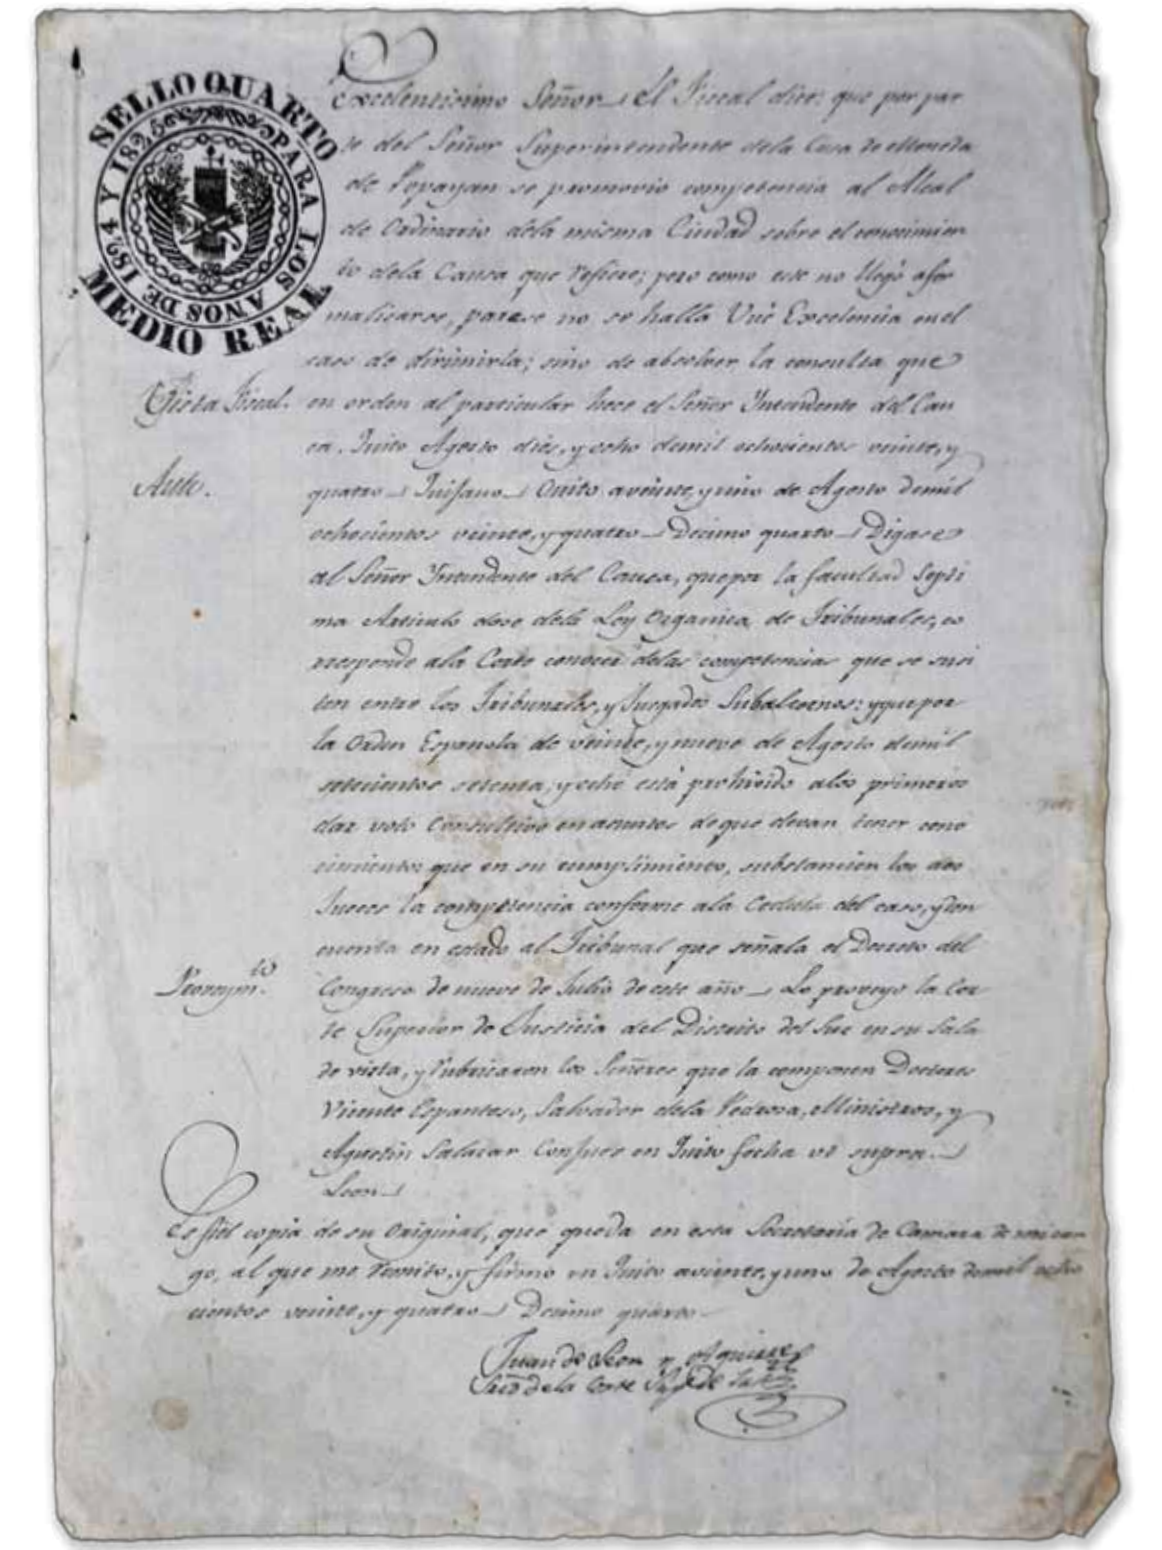 SELLO QUARTO
PARA LOS AÑOS DE 1824 Y 1825
MEDIO REAL
Excelentisimo Señor El Fiscal dice: que por par
te del Señor Superintendente dela Casa de Moneda
de Popayan se promovio competencia al Alcal
de Ordinario dela misma Ciudad sobre el conocimien
to dela Causa que refiere; pero como este no llegó afor
malisarse, parece no se halla Excelencia en el
caso de dirimirla; sino de absolver la consulta que
Vista Fiscal.
en orden al particular hace el Señor Yntendente del Cau
ca. Quito Agosto dies, y ocho demil ochocientos veinte, y
Auto.
quatro Quito aveinte, y uno de Agosto demil
ochocientos veinte, y quatro Decimo quarto Digase
al Señor Yntendente del Cauca, quepor la facultad septi
ma Articulo dose dela Ley Organica de Tribunales, co
rresponde ala Corte conocer delas competencias que se susi
ten entre los Tribunales, y Jusgados Subalternos: yque por
la Orden Española de veinte, y nueve de Agosto demil
setecientos setenta, y ocho está prohivido alos primeros
dar voto Consultivo en asuntos de que devan tener cono
cimiento: que en su cumplimiento, substancien los dos
Jueces la competencia conforme ala Cedula del caso, y den
cuenta en estado al Tribunal que señala el Decreto del
Proveym.to
Congreso de nueve de Julio de este año Lo proveyo la Cor
te Superior de Justicia del Distrito del Sur en su Sala
de vista, y rubricaron los Señores que la componen Doctores
Vicente Espantoso, Salvador dela Pedrosa, Ministros, y
Agustin Salazar Conjuez en Quito fecha ut supra.
Leon
Es fiel copia de su Original, que queda en esta Secretaría de Camara de mi car
go, al que me remito, y firmo en Quito aveinte, y uno de Agosto demil ocho
cientos veinte, y quatro Decimo quarto
Juan de Leon y Aguirre
Srio dela Corte de